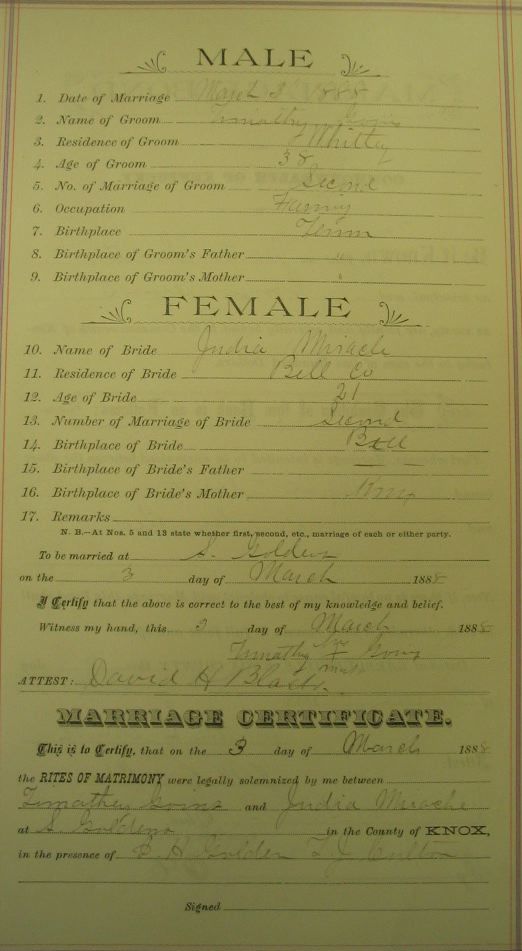 MALE
1. Date of Marriage March 3 1888
2. Name of Groom Timothy Goins
3. Residence of Groom Whitley
4. Age of Groom 38
5. No. of Marriage of Groom Second
6. Occupation Farming
7. Birthplace Tenn
8. Birthplace of Groom's Father "
9. Birthplace of Groom's Mother "
FEMALE
10. Name of Bride India Miracle
11. Residence of Bride Bell Co
12. Age of Bride 21
13. Number of Marriage of Bride Second
14. Birthplace of Bride Bell
15. Birthplace of Bride's Father — —
16. Birthplace of Bride's Mother
17. Remarks
N. B.—At Nos. 5 and 13 state whether first, second, etc., marriage of each or either party.
To be married at S. Goldens
on the 3 day of March 1888
I Certify that the above is correct to the best of my knowledge and belief.
Witness my hand, this 3 day of March 1888
Timothy his x mark Goins
ATTEST: David H
MARRIAGE CERTIFICATE.
This is to Certify, that on the 3 day of March 1888
the RITES OF MATRIMONY were legally solemnized by me between
Timothy Goins and India Miracle
at S. Goldens in the County of KNOX,
in the presence of Golden T. J.
Signed